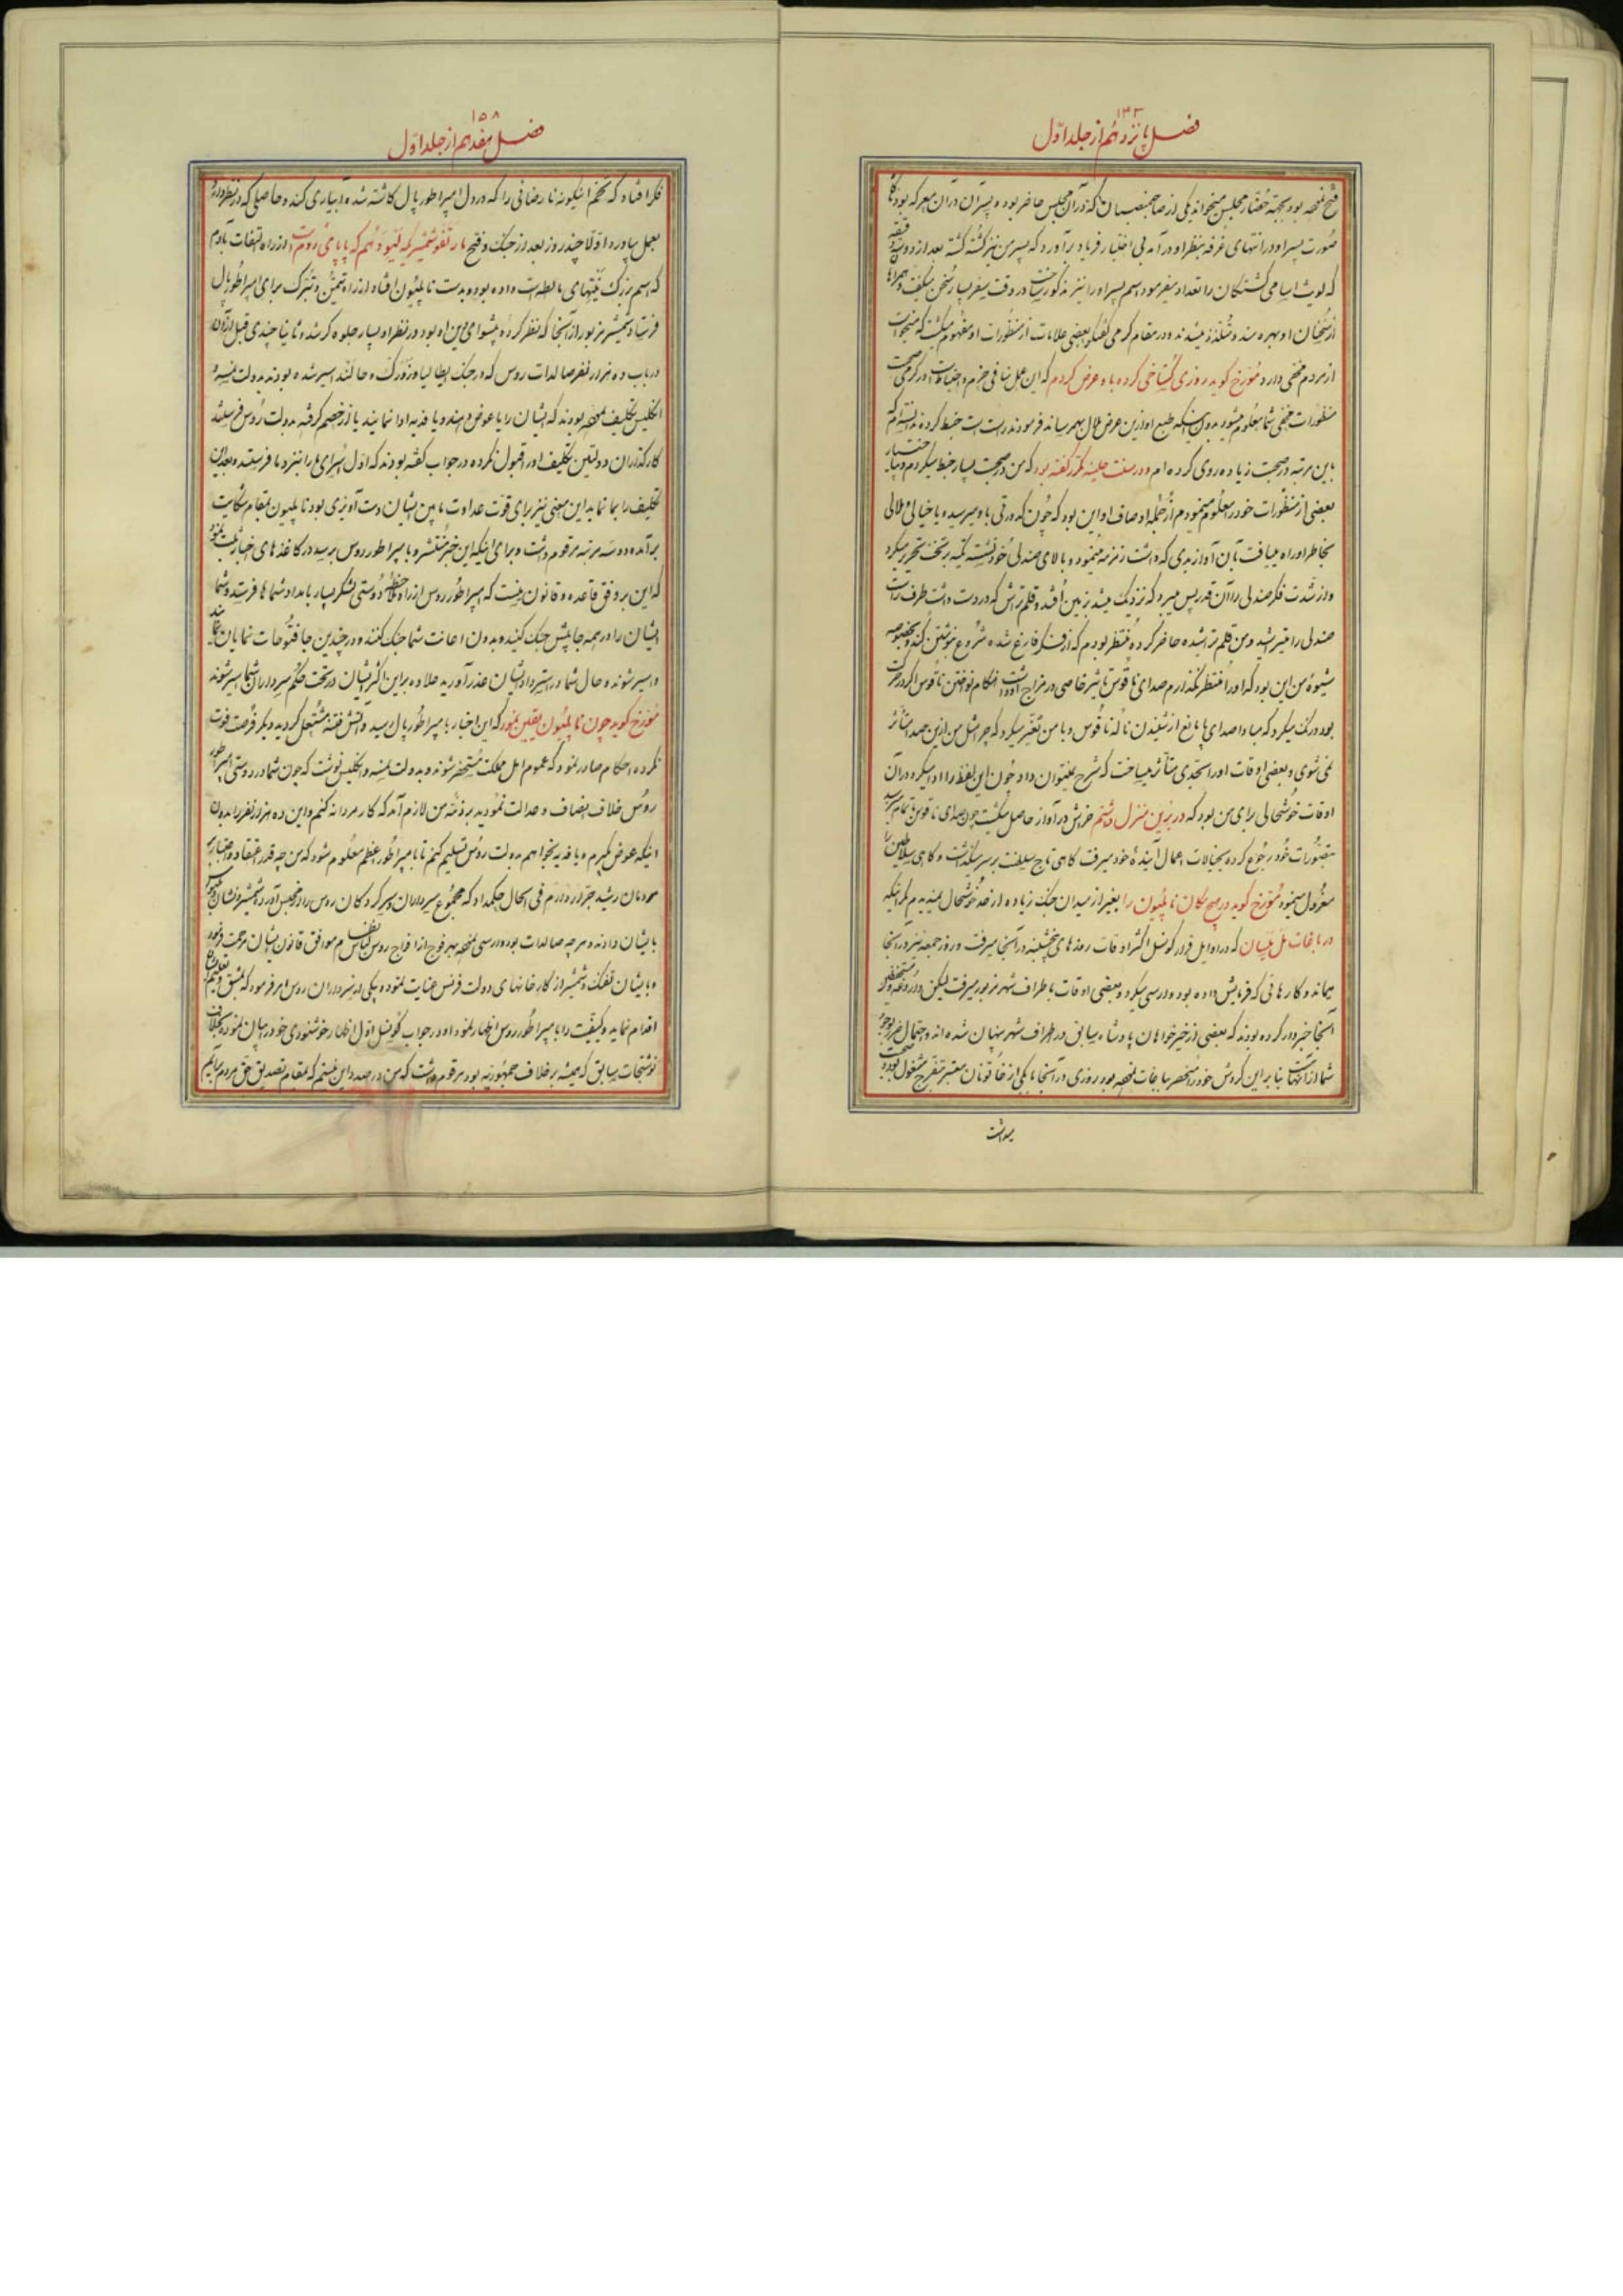 ۱۴۳
فصل پانزدهم از جلد اول
فتح نمچه بود بجهة حُضّار مجلس میخواند یکی از صاحبمنصبان که در آن مجلس حاضر بود و پسر آن در آن معرکه بود
صُورت پسر او در انتهای غُرفه بنظر او درآمد بی اختیار فریاد برآورد که پسر من نیز کُشته گشته بعد از دو سه دقیقه
که لویت اسامی کشتگان را تعداد میفرمود اسم پسر او را نیز مذکور ساخت در وقت سفر بسیار سُخن میگفت و همراهان
از سُخنان او بهره مند و مُتلذّذ میشدند و در مقام گرمی گفتگو بعضی علامات از منظُورات او مفهُوم میگشت که میخواست
از مردم مخفی دارد مُورّخ گوید روزی گُستاخی کرده باو عرض کردم که این عمل منافی حزم و احتیاط است و در گرمی صحبت
منظُورات مخفی شما معلُوم میشود بدون اینکه طبع او ازین عرض ملال بهم رساند فرمودند راست است خبط کرده ندانسته ام که
باین مرتبه در صحبت زیاده روی کرده ام و در سنت هلینه مکرّر گفته بود که من در صحبت بسیار خبط میکردم و بی اختیار
بعضی از منظُورات خود را معلُوم مینمودم از جُمله اوصاف او این بود که چُون که ورقی باو میرسید و یا خیالی و ملالی
بخاطر او راه مییافت بآن آواز بدی که داشت زمزمه مینمود و بالای صندلی خُود نشسته تکیه بر تخت تحریر میکرد
و از شدّت فکر صندلی را آن قدر پس میبرد که نزدیک میشد بزمین اُفتد و قلم تراش که در دست داشت طرف راست
صندلی را میتراشید و من قلم تراشیده حاضر کرده مُنتظر بودم که از فکر فارغ شده شُروع بنوشتن کند و بخصوصه
شیوهٔ من این بود که او را مُنتظر نگذارم صدای ناقوس تاثیر خاصی در مزاج او داشت هنگام نواختن ناقُوس اگر در حرکت
بود درنگ میکرد که مبادا صدای پا مانع از شنیدن نالهٔ ناقُوس و با من تغیّر میکرد که چرا مثل من ازین صدا متأثر
نمی شوی و بعضی اوقات او را بحدّی متأثر میساخت که شرح نمیتوان داد چُون این لفظ را ادا میکرد در آن
اوقات خوشحالی برای من بود که در برّین منزل داشتم خراش در آواز حاصل میگشت چون صدای ناقوس تمام میرسید
بتصوّرات خُود رجُوع کرده بخیالات اعمال آیندهٔ خود میرفت گاهی تاج سلطنت بر سر میگذاشت و گاهی سلاطین را
معزُول مینمود مُورّخ گوید در هیچ مکان ناپلیُون را بغیر از میدان جنگ زیاده از حد خوشحال ندیدیم مگر اینکه
در باغات مَل مِیّسان که در اوایل قرار کونسل اکثر اوقات روزهای پنجشنبه در آنجا میرفت و روز جمعه نیز در آنجا
میماند و کارهائی که فرمایش داده بود وارسی میکرد و بعضی اوقات باطراف شهر مزبور میرفت لیکن داروغه و مستحفظین
آنجا خبردار کرده بودند که بعضی از خیرخواهان پادشاه سابق در اطراف شهر پنهان شده اند و احتمال ضرر بوجود
شما از آنهاست بنابراین گردش خود را مُنحصر بباغات نمچه بود روزی در آنجا با یکی از خاتُونان معتبر بتفرّج مشغول بود و صحبت
میداشت
۱۵۸
فصل هفدهم از جلد اول
فکر افتاد که تخم اینگونه نارضائی را که در دل امپراطور پال کاشته شده آبیاری کند و حاصلی که در نظر دارد
بعمل بیاورد اوّلاً چند روز بعد از جنگ و فتح مارنغو شمشیریکه لئیو دهُم که پاپای رُوم است از راه التفات بآدم
که اسم بزرگ نیّتهای مالطه است داده بود و بدست ناپلیُون افتاده از راه تیمّن و تبرّک برای امپراطُور پال
فرستاد شمشیر مزبور از آنجا که نظر کردهٔ پیشوای دین او بود در نظر او بسیار جلوه گر شد و ثانیا چندی قبل از آن
در باب ده هزار نفر صالدات روس که در جنگ ایطالیا و زورک و حالند اسیر شده بودند بدولت نمسه و
انگلیس تکلیف نمچه بودند که ایشان را یا عوض دهند و یا فدیه ادا نمایند یا از خصم گرفته بدولت رُوس فرستند
کارگذاران دولتین تکلیف او را قبول نکرده در جواب گفته بودند که اوّل اُسرای ما را بنزد ما فرستید و بعد این
تکلیف را بما نمایید این معنی نیز برای قوّت عداوت مابین ایشان دست آویزی بود ناپلیون بمقام شکایت
برآمده دو سه مرتبه مرقوم داشت و برای اینکه این خبر مُنتشر و بامپراطور روس برسد در کاغذهای اخبار ثبت نمود
که این بر وفق قاعده و قانون نیست که امپراطُور روس از راه ملاحظهٔ دوستی لشکر بسیار بامداد شماها فرستد و شما
ایشان را در همه جا پیش جنگ کنید و بدون اعانت شما جنگ کنند و در چندین جا فتُوحات نمایان نمایند
و اسیر شوند و حال شما در استرداد ایشان عذر آورید علاوه بر این اکثر ایشان در تحت حکم سرداران شما اسیر شوند
مُورّخ گوید چون ناپلیُون یقین نمود که این اخبار بامپراطُور پال رسید و آتش فتنه مشتعل گردید دیگر فُرصت فوت
نکرده احکام صادر نمود که عموم اهل مملکت مُستحضر شوند و بدولت نمسه و انگلیس نوشت که چون شما در دوستی امپراطور
روُس خلاف انصاف و عدالت نمُودید بر ذمّه من لازم آمد که کار مردانه کنم و این ده هزار نفر را بدون
اینکه عوض بگیرم و یا فدیه بخواهم بدولت روُس تسلیم کنم تا بامپراطُور اعظم معلُوم شود که من چه قدر اعتقاد و اعتبار به
مردمان رشید جرّار دارم فی الحال حکم داد که مجموع سرداران و سرکردگان روس را در مجلس آورده شمشیر و نشان جنگ
بایشان دادند و هر چه صالدات بود وارسی نمچه بهر فوج از افواج روس لباس نظام موافق قانون ایشان مرحمت فرمود
و بایشان تفنگ و شمشیر از کارخانهای دولت فرنس عنایت نموده بیکی از سرداران روس امر فرمود که بمشق و تعلیم
اقدام نماید و کیفیّت را بامپراطُور روس اظهار نمود او در جواب کونسل اوّل اظهار خوشنودی خود را بیان نمود بخلاف
نوشتجات سابق که همیشه بر خلاف جمهُوریّه بود مرقوم داشت که من در صدد این نیستم که بمقام تصدیق حقّ مردم برآیم